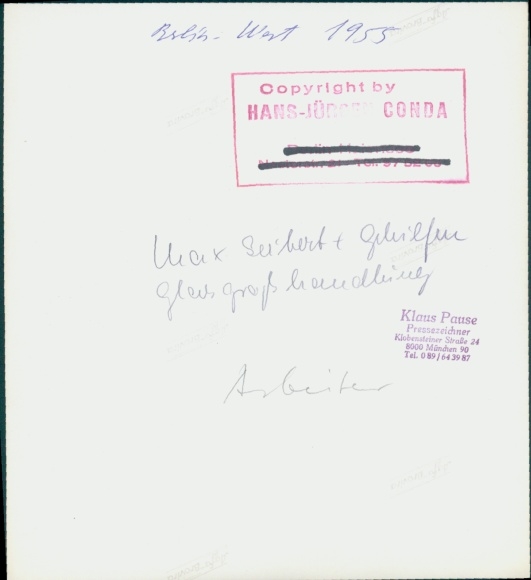 Berlin-West 1955
Copyright by
HANS-JÜRGEN CONDA
Max Seibert + Gehilfen
Glasgroßhandlung
Klaus Pause
Pressezeichner
Klobensteiner Straße 24
8000 München 90
Tel. 0 89 / 64 39 87
Arbeiter